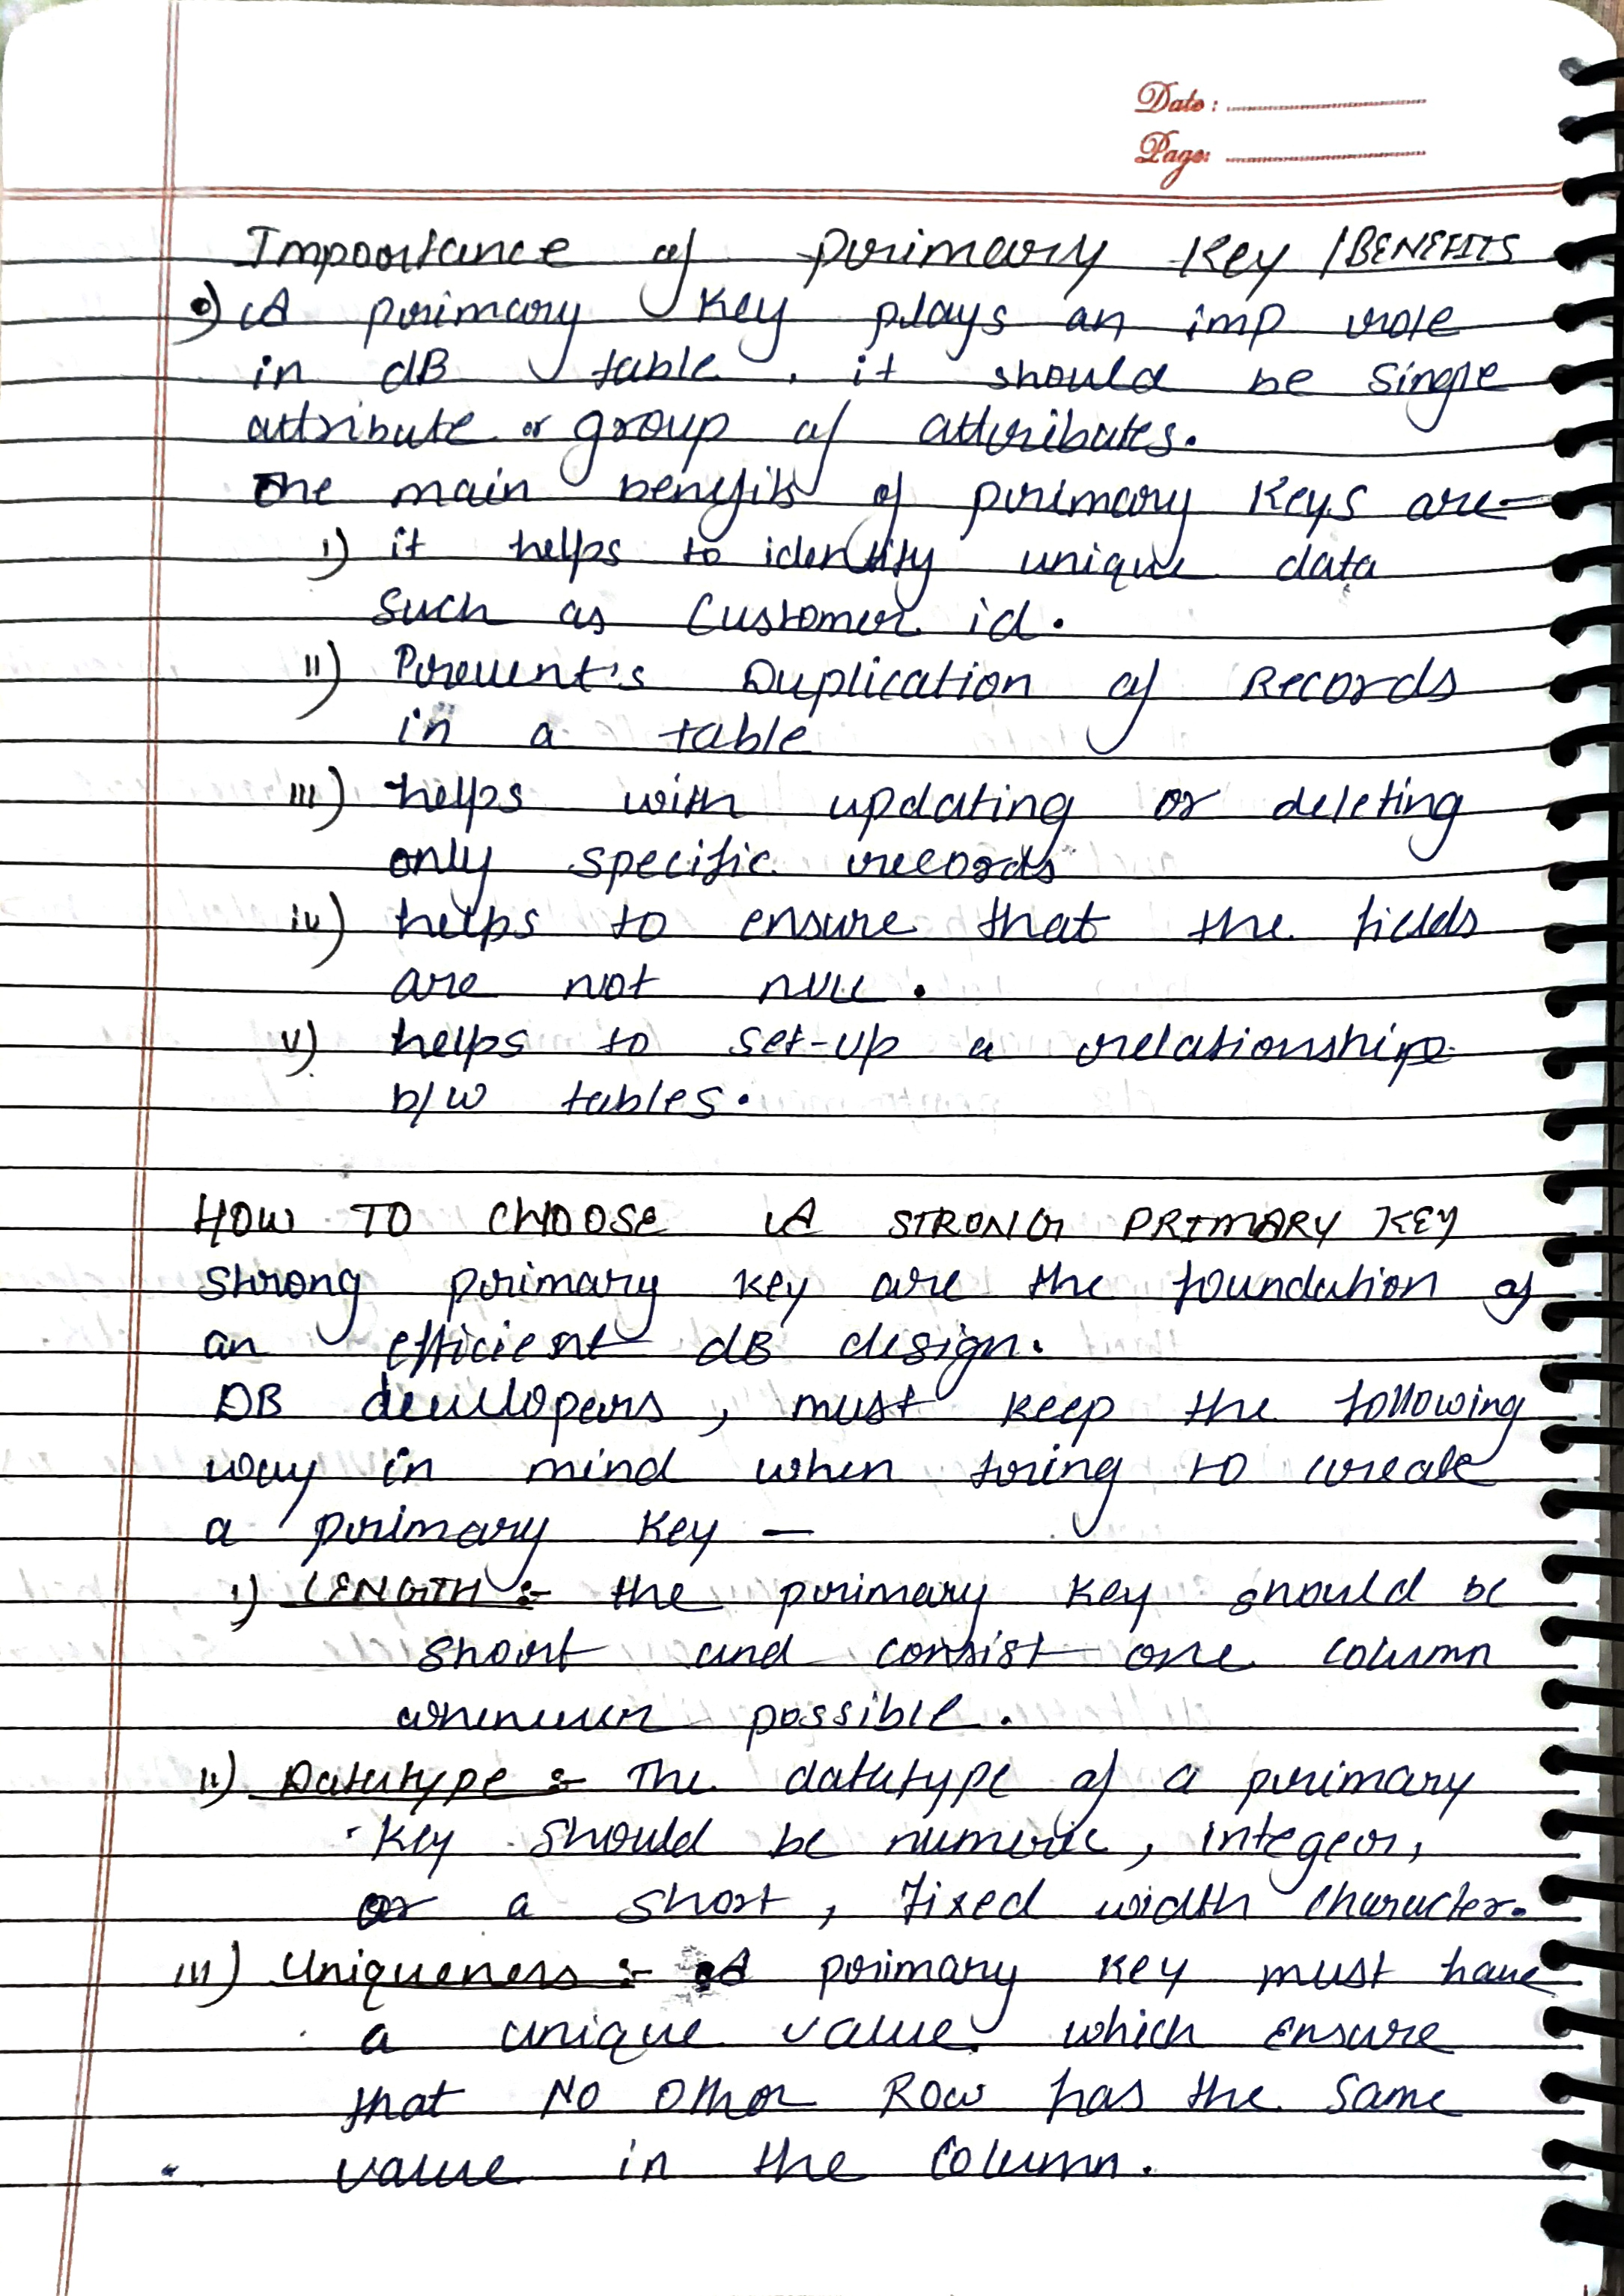 Date :
Page:
Importance of primary Key /BENEFITS
•) A primary Key plays an imp role
in dB table, it should be single
attribute or group of attributes.
The main benefits of primary Keys are-
i) it helps to identify unique data
such as Customer id.
ii) Prevent's Duplication of Records
in a table
iii) helps with updating or deleting
only specific records
iv) helps to ensure that the fields
are not null.
v) helps to set-up a relationship
b/w tables.
HOW TO CHOOSE A STRONG PRIMARY KEY
Strong primary key are the foundation of
an efficient dB design.
DB developers, must keep the following
way in mind when tring to create
a primary key —
i) LENGTH :- the primary key should be
short and consist one column
whenever possible.
ii) Datatype :- The datatype of a primary
key should be numeric, integer,
or a short, fixed width character.
iii) Uniqueness :- A primary key must have
a unique value which ensure
that NO Other Row has the same
value in the Column.